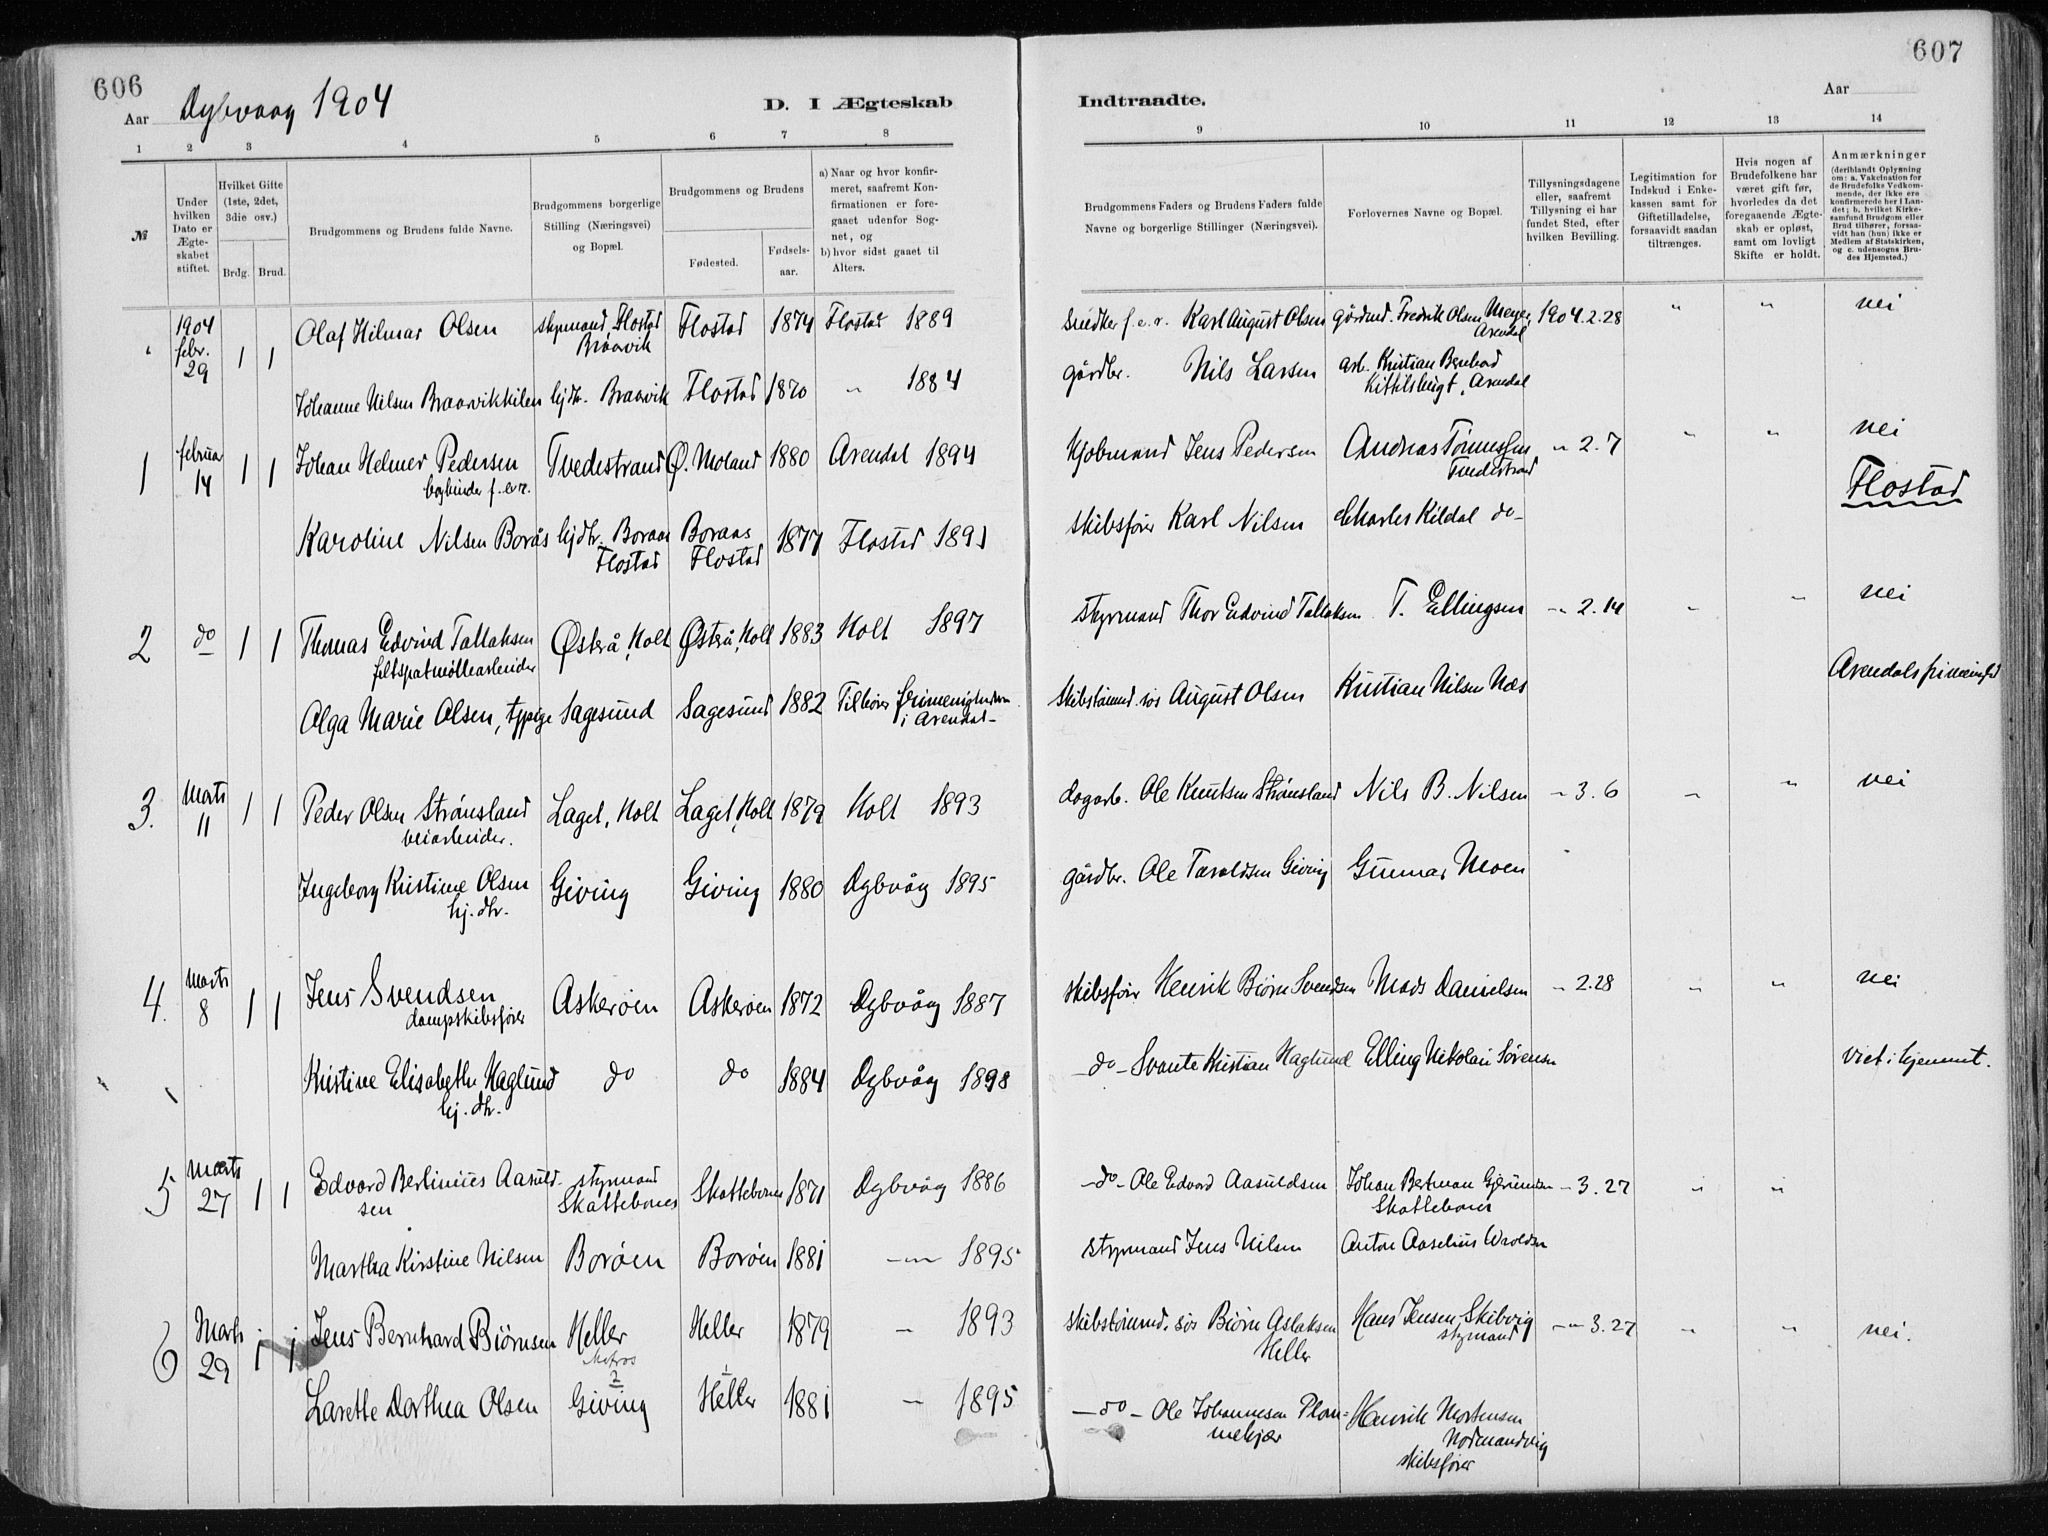 606
Dybvaag 1904
Aar
D. I Ægteskab
1 2 3 4 5 6 7 8
№
Under hvilken Dato er Ægteskabet stiftet.
Hvilket Gifte (1ste, 2det, 3die osv.)
Brdg. Brud.
Brudgommens og Brudens fulde Navne.
Brudgommens borgerlige Stilling (Næringsvei) og Bopæl.
Brudgommens og Brudens
Fødested. Fødselsaar.
a) Naar og hvor konfirmeret, saafremt Konfirmationen er foregaaet udenfor Sognet, og
b) hvor sidst gaaet til Alters.
1904 febr. 29 1 1 Olaf Hilmar Olsen styrmand, Flostad Braavik Flostad 1874 Flostad 1889
Johanne Nilsen Braavikkilen hj. dtr. Braavik Flostad 1870 " 1884
1 februar 14 1 1 Johan Helmer Pedersen bogbinder f. e. r. Tvedestrand Ø. Moland 1880 Arendal 1894
Karoline Nilsen Borås hj dtr. Boraas Flostad Boraas Flostad 1877 Flostad 1891
2 do 1 1 Thomas Edvind Tallaksen feltspatmøllearbeider Østerå, Holt Østerå, Holt 1883 Holt 1897
Olga Marie Olsen, t. pige Sagesund Sagesund 1882 Tilhører frimenigheden i Arendal
3. Marts 11 1 1 Peder Olsen Strønsland veiarbeider. Laget, Holt Laget, Holt 1879 Holt 1893
Ingeborg Kristine Olsen hj. dtr. Giving Giving 1880 Dybvåg 1895
4. Marts 8 1 1 Jens Svendsen dampskibsfører Askerøen Askerøen 1872 Dybvåg 1887
Kristine Elisabeth Haglund hj. dtr. do do 1884 Dybvåg 1898
5 Marts 27 1 1 Edvard Berlinius Aasuldsen styrmand Skattebones Skattebones 1871 Dybvåg 1886
Martha Kirstine Nilsen Borøen Borøen 1881 -"- 1895
6 Marts 29 1 1 Jens Bernhard Biørnsen Heller Matros Heller 1879 - 1893
Larette Dorthea Olsen Giving Heller 1881 - 1895
607
Indtraadte.
Aar
9 10 11 12 13 14
Brudgommens Faders og Brudens Faders fulde Navne og borgerlige Stillinger (Næringsvei).
Forlovernes Navne og Bopæl.
Tillysningsdagene eller, saafremt Tillysning ei har fundet Sted, efter hvilken Bevilling.
Legitimation for Indskud i Enkekassen samt for Giftetilladelse, forsaavidt saadan tiltrænges.
Hvis nogen af Brudefolkene har været gift før, hvorledes da det foregaaende Ægteskab er opløst, samt om lovligt Skifte er holdt.
Anmærkninger (deriblandt Oplysning om: a. Vakcination for de Brudefolks Vedkommende, der ikke ere konfirmerede her i Landet; b. hvilket Kirkesamfund Brudgom eller Brud tilhører, forsaavidt han (hun) ikke er Medlem af Statskirken, og c. udensogns Brudes Hjemsted.)
Snedker f. e. r. Karl August Olsen gårdmd. Fredrik Olsen Meyer, Arendal 1904.2.28 " " nei
gårdbr. Nils Larsen arb. Kristian Bernhard Kittilsbugt, Arendal
Kjøbmand Jens Pedersen Andreas Tønnessen Tvedestrand " 2.7 " " nei
Flostad
skibsfører Karl Nilsen Charles Kildal do-
styrmand Thor Edvind Tallaksen T. Ellingsen -" 2.14 " " nei
Skibstømmd. søs August Olsen Kristian Nilsen Næs Arendals frimenighed
dagarb. Ole Knutsen Strønsland Nils B. Nilsen " 3.6 " " nei
gårdbr. Ole Taraldsen Giving Gunnar Moen
skibsfører Henrik Biørn Svendsen Mads Danielsen " 2.28 " " nei
-do- Svante Kristian Haglund Elling Nikolai Sørensen Viet i hjemmet.
-do- Ole Edvard Aasuldsen Johan Bertman Gjeruldsen Skattebones - 3.27 " "
styrmand Jens Nilsen Anton Aaselius Waoldsen
skibstømmd. søs Biørn Aslaksen Heller Hans Jensen, Skibvig styrmand -" 3.27 " " nei.
-do- Ole Johannesen Plommekjær Henrik Mortensen Nordmandvig skibsfører